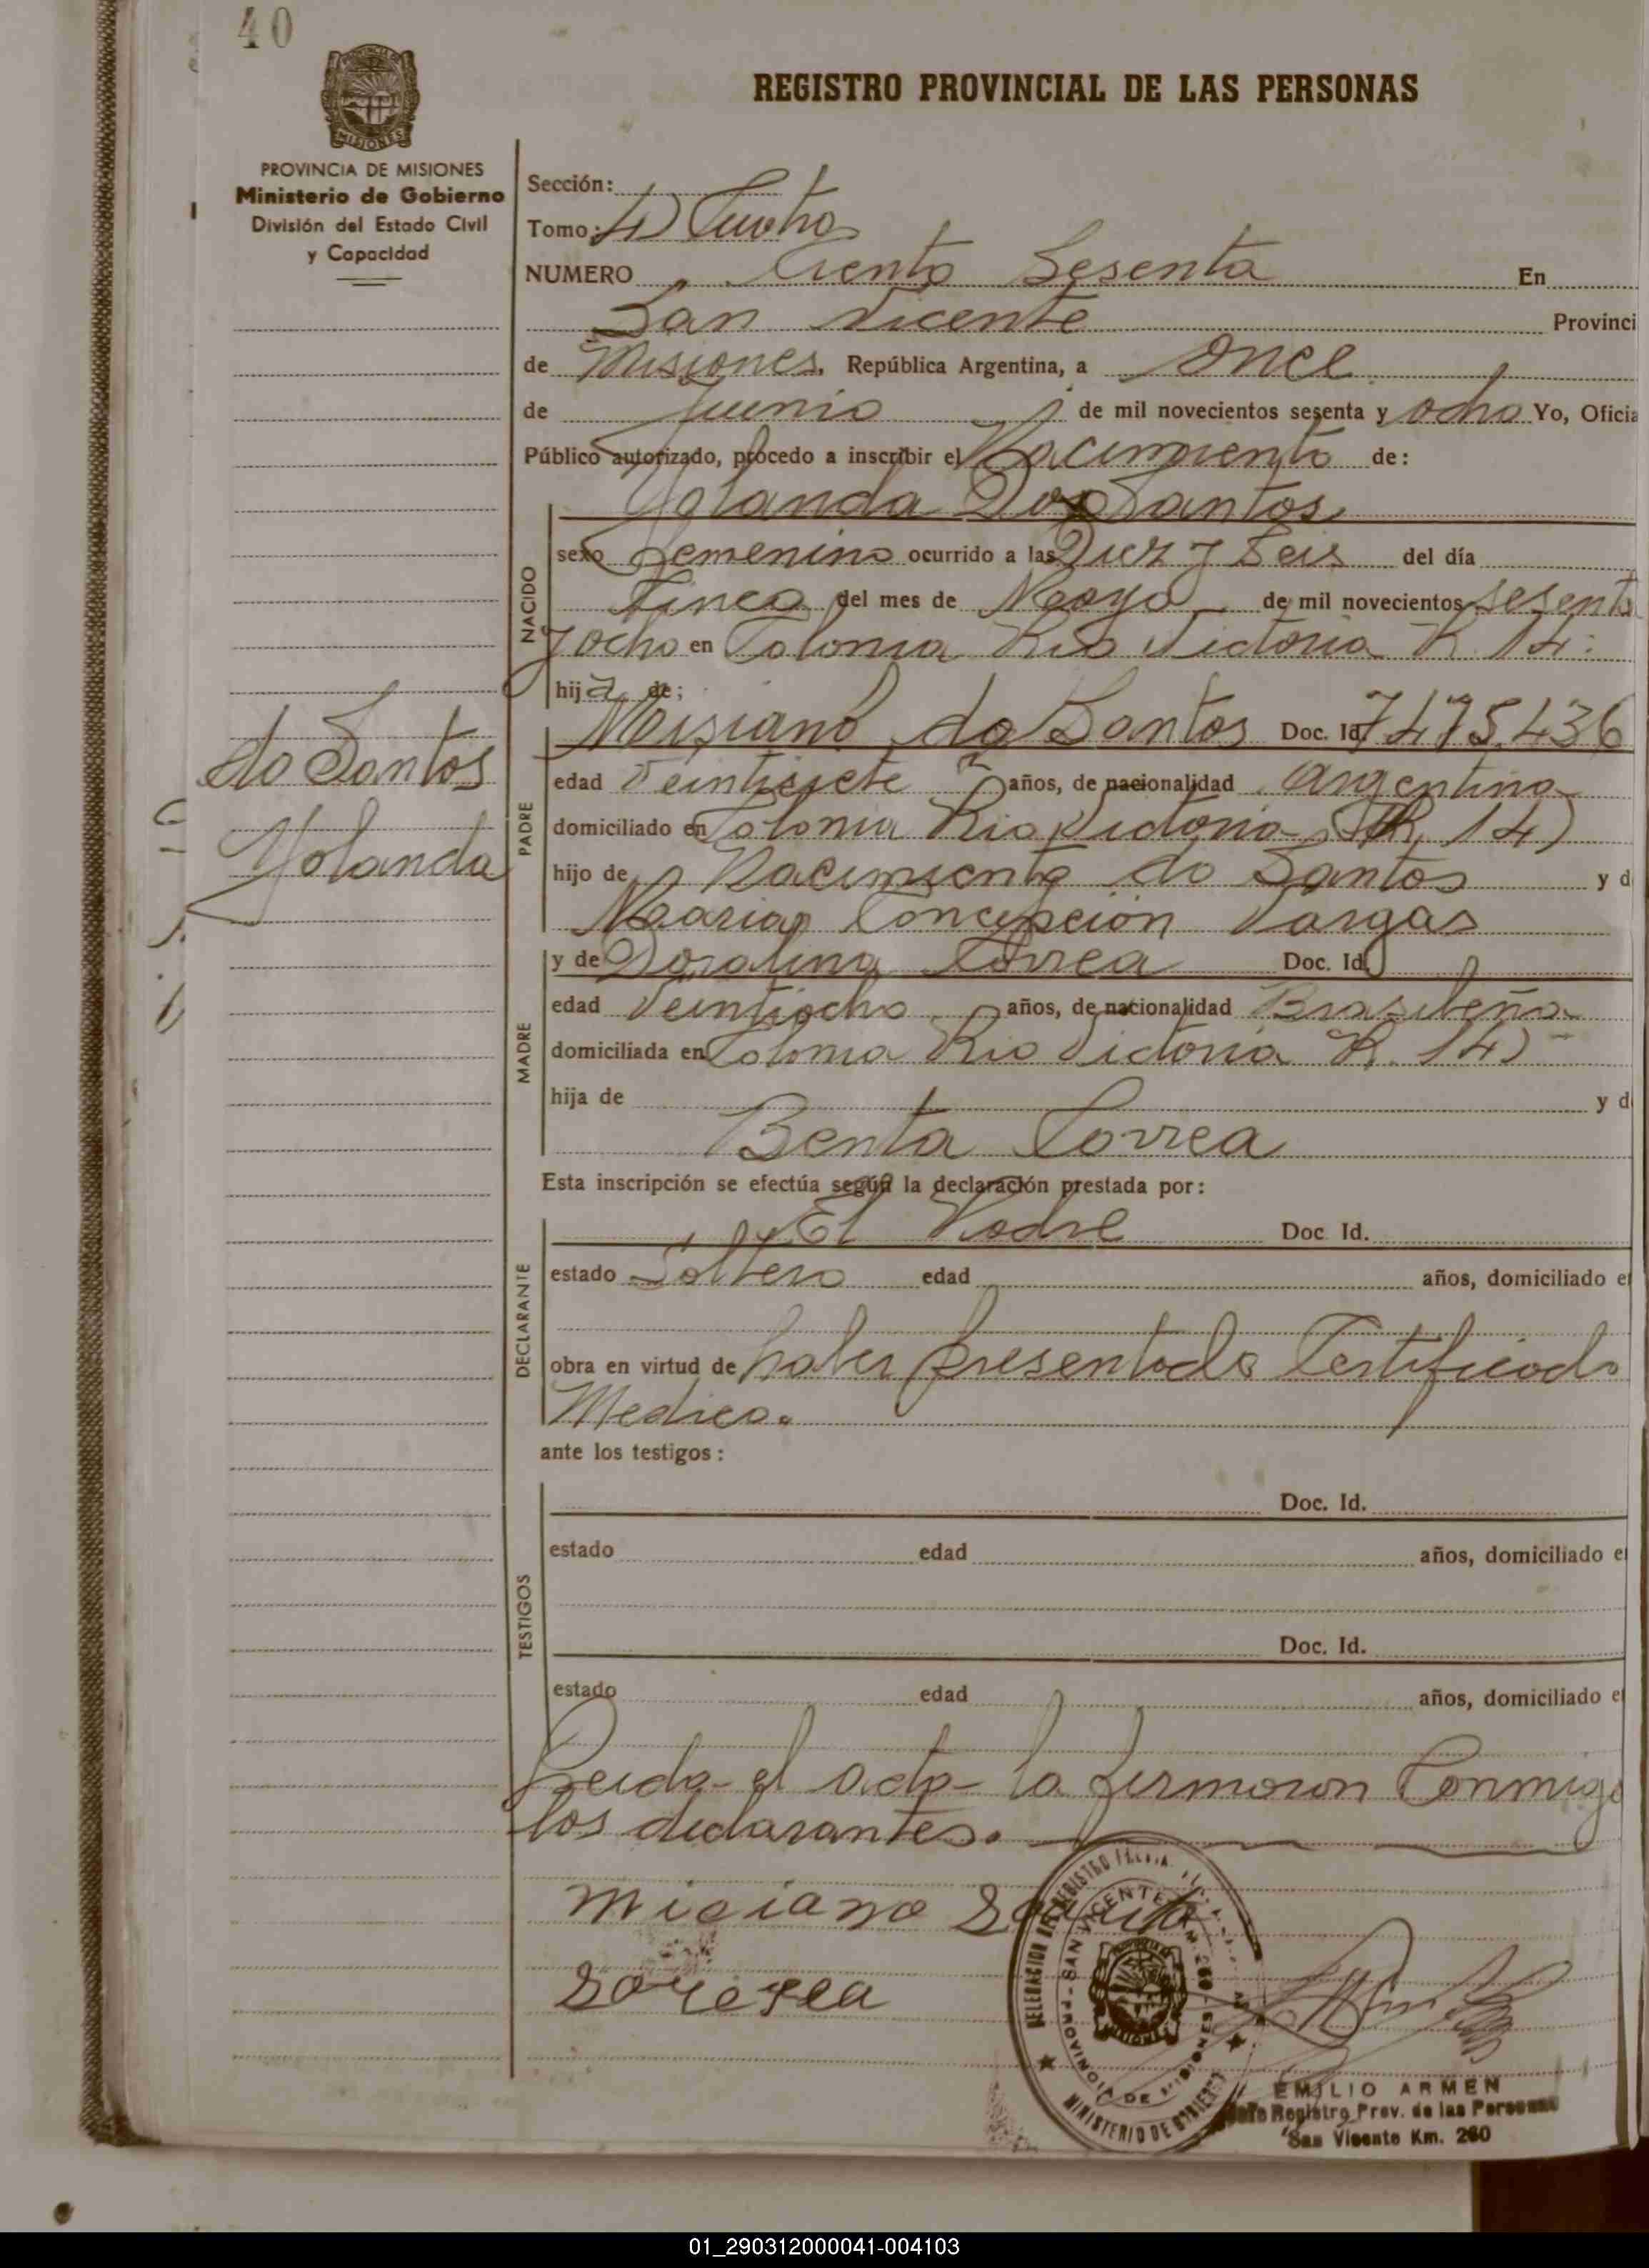 40
REGISTRO PROVINCIAL DE LAS PERSONAS
PROVINCIA DE MISIONES
Ministerio de Gobierno
División del Estado Civil
y Capacidad
Sección:
Tomo: 4
NUMERO Ciento Sesenta En
San Vicente Provinci
de Misiones, República Argentina, a once
de Junio de mil novecientos sesenta y ocho Yo, Oficia
Público autorizado, procedo a inscribir el Nacimiento de:
Yolanda Dos Santos
NACIDO
sexo Femenino ocurrido a las Diez y Seis del día
Cinco del mes de Mayo de mil novecientos sesenta
y ocho en Colonia Rio Victoria R. 14.
hija de;
do Santos
Yolanda
PADRE
Misiano do Santos Doc. Id 7475.436
edad Veintisiete años, de nacionalidad Argentina
domiciliado en Colonia Rio Victoria (R. 14)
hijo de Nacimiento do Santos y d
Maria Concepción Vargas
MADRE
y de Doralina Correa Doc. Id.
edad Veintiocho años, de nacionalidad Brasileña
domiciliada en Colonia Rio Victoria R. 14)
hija de y d
Benta Correa
Esta inscripción se efectúa según la declaración prestada por:
DECLARANTE
El Padre Doc Id.
estado Soltero edad años, domiciliado e
obra en virtud de haber presentado Certificado
Medico.
ante los testigos:
TESTIGOS
Doc. Id.
estado edad años, domiciliado e
Doc. Id.
estado edad años, domiciliado e
Leida el acta la firmaron Conmigo
los declarantes.
misiano
SAN VICENTE
PROVINCIA DE MISIONES
MINISTERIO DE GOBIERNO
EMILIO ARMEN
Registro Prov. de las Personas
San Vicente Km. 260
01_290312000041-004103